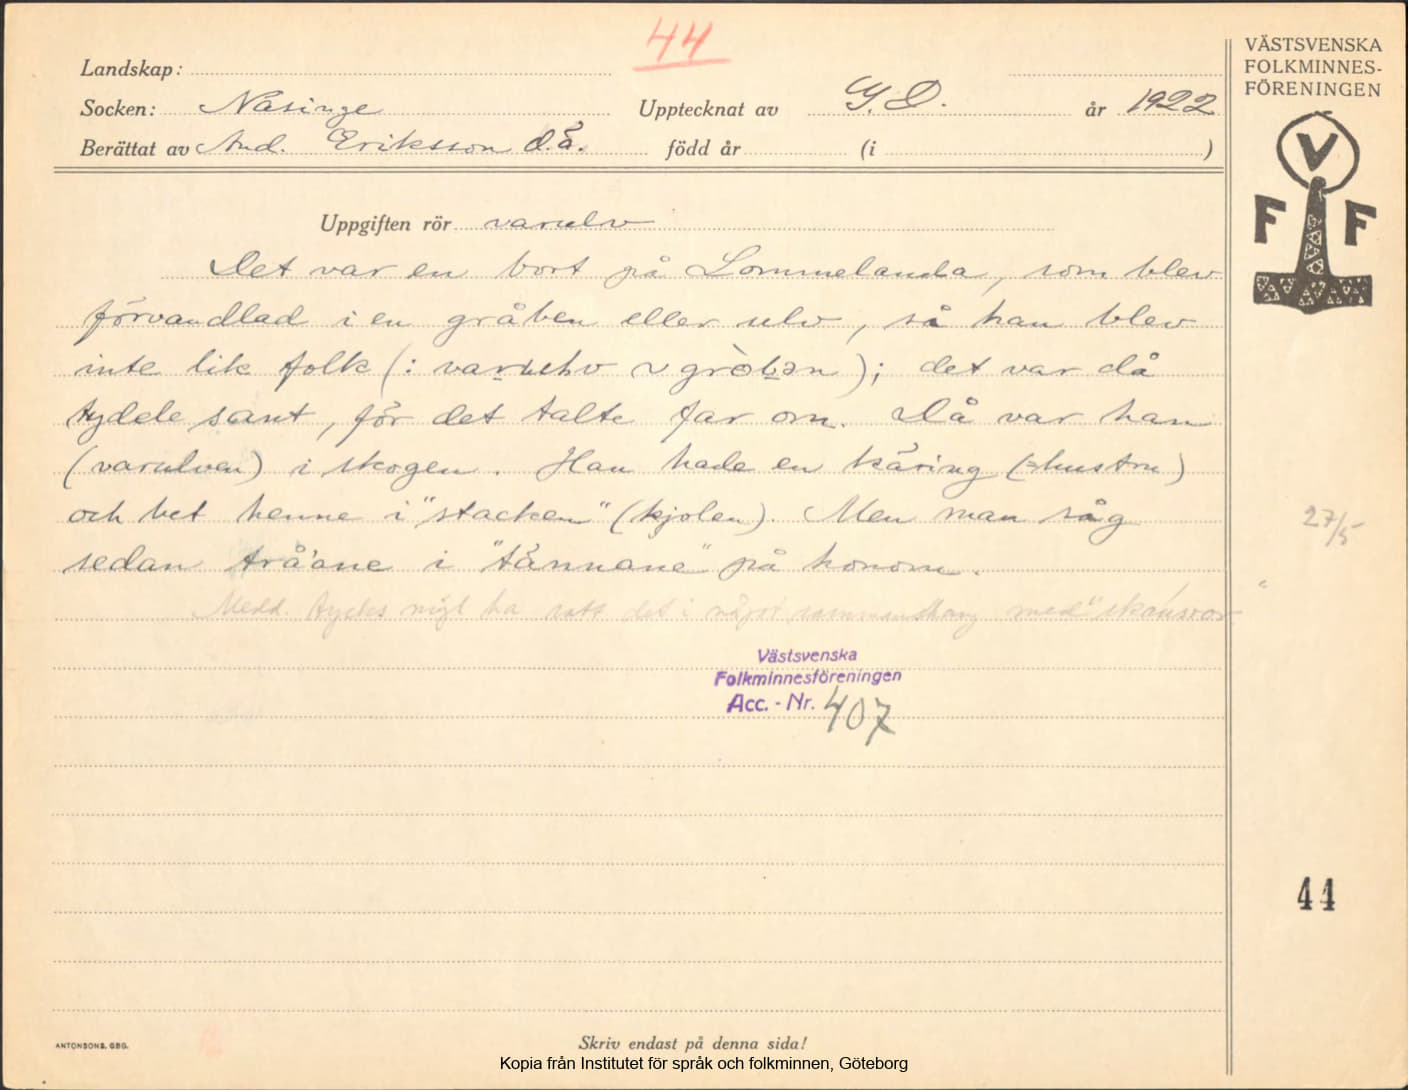 44
Landskap:
Socken: Näsinge Upptecknat av G.D. år 1922
Berättat av And. Eriksson d.ä. född år (i )
Uppgiften rör varulv
Det var en bort på Lommelanda, som blev
förvandlad i en gråben eller ulv, så han blev
inte lik folk (: varulv ~ gròban); det var då
tydele sant, för det talte far om. Då var han
(varulven) i skogen. Han hade en käring (=hustru)
och bet henne i "stacken" (kjolen). Men man såg
sedan trå'ane i "tännane" på honom.
Medd. tycks möjl ha satt det i något sammanhang med "skånsvar"
Västsvenska
Folkminnesföreningen
Acc. - Nr. 407
ANTONSONS, GBG.
Skriv endast på denna sida!
Kopia från Institutet för språk och folkminnen, Göteborg
VÄSTSVENSKA
FOLKMINNES-
FÖRENINGEN
V
F F
27/5
44